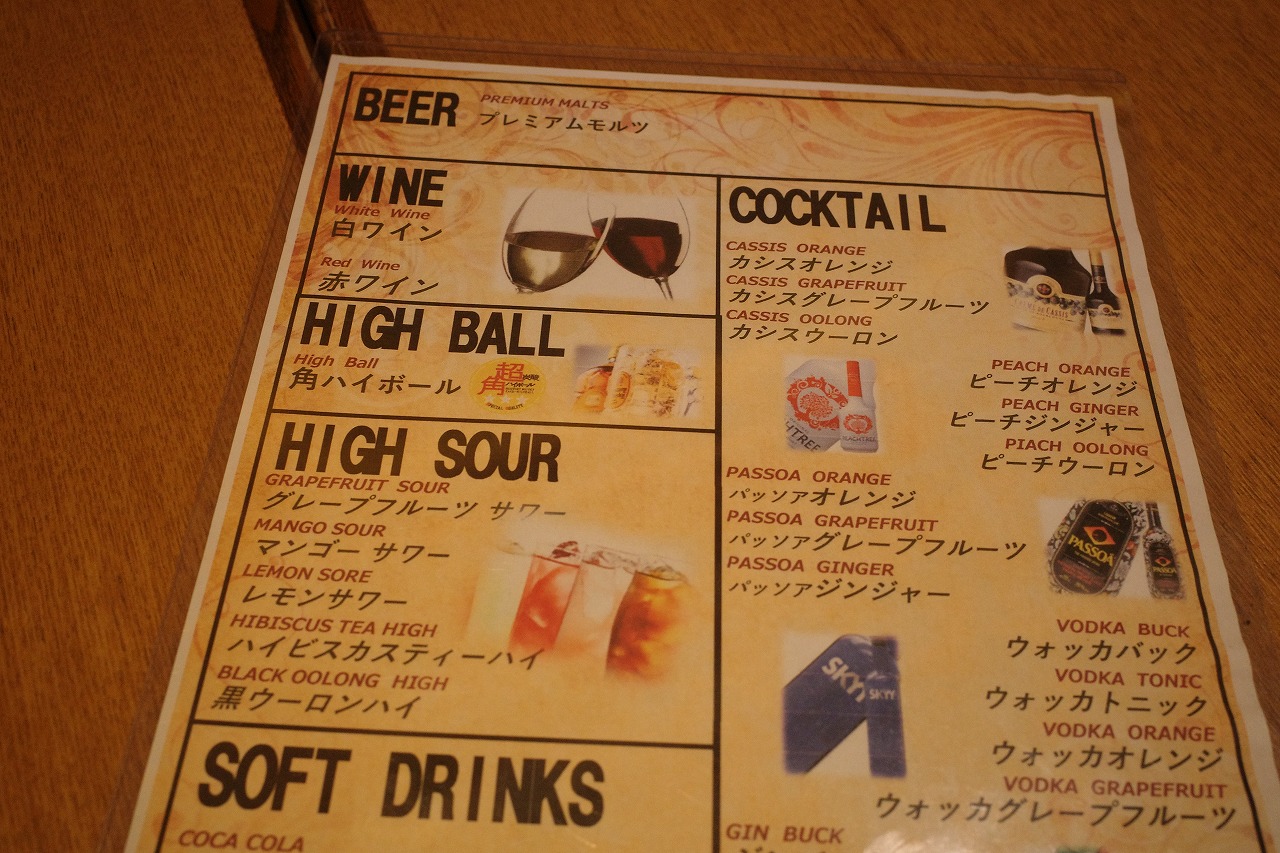 BEER
PREMIUM MALTS
プレミアムモルツ
WINE
White Wine
白ワイン
Red Wine
赤ワイン
HIGH BALL
High Ball
角ハイボール
超
角
炭酸
ハイボール
HIGH SOUR
GRAPEFRUIT SOUR
グレープフルーツ サワー
MANGO SOUR
マンゴー サワー
LEMON SORE
レモンサワー
HIBISCUS TEA HIGH
ハイビスカスティーハイ
BLACK OOLONG HIGH
黒ウーロンハイ
SOFT DRINKS
COCA COLA
COCKTAIL
CASSIS ORANGE
カシスオレンジ
CASSIS GRAPEFRUIT
カシスグレープフルーツ
CASSIS OOLONG
カシスウーロン
DE CASSIS
PEACH ORANGE
ピーチオレンジ
PEACH GINGER
ピーチジンジャー
PIACH OOLONG
ピーチウーロン
HTREE
PEACHTREE
PASSOA ORANGE
パッソァオレンジ
PASSOA GRAPEFRUIT
パッソァグレープフルーツ
PASSOA GINGER
パッソァジンジャー
PASSOA
PASSOA
VODKA BUCK
ウォッカバック
VODKA TONIC
ウォッカトニック
VODKA ORANGE
ウォッカオレンジ
VODKA GRAPEFRUIT
ウォッカグレープフルーツ
SKYY
SKYY
GIN BUCK